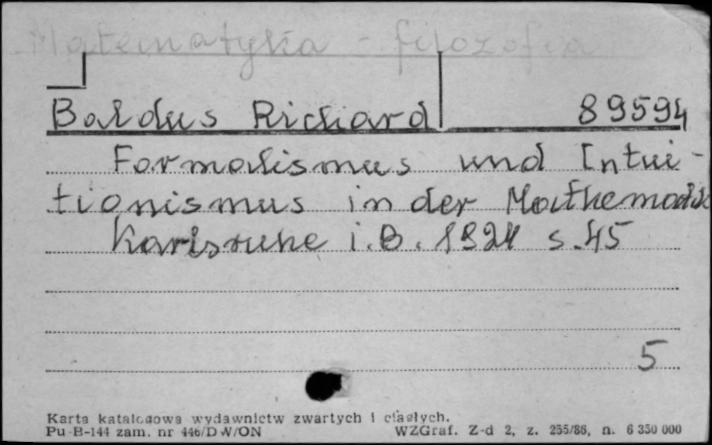 Matematyka - filozofia
Baldus Richard 89594
Formalismus und Intui-
tionismus in der Mathematik
Karlsruhe i.B. 1924 s. 45
5
Karta katalogowa wydawnictw zwartych i ciągłych.
Pu-B-144 zam. nr 446/DW/ON WZGraf. Z-d 2, z. 255/86, n. 6 350 000